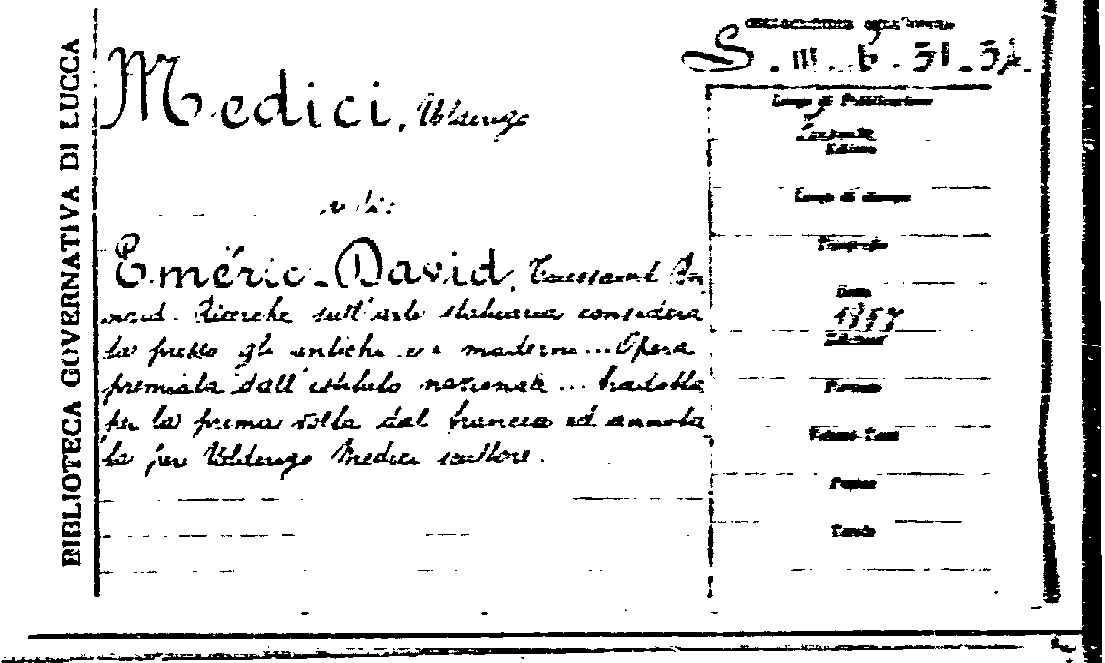 BIBLIOTECA GOVERNATIVA DI LUCCA
S. III. 6. 31. 32
Medici, Ulderigo
vedi:
Luogo di Pubblicazione
Editore
Luogo di stampa
Tipografia
Data
1857
Edizione
Formato
Volumi-Tomi
Pagine
Tavole
Eméric-David, Toussaint Ber
nard. Ricerche sull'arte statuaria considera
ta presso gli antichi e i moderni... Opera
premiata dall'istituto nazionale... tradotta
per la prima volta dal francese ed annota
ta per Ulderigo Medici scultore.